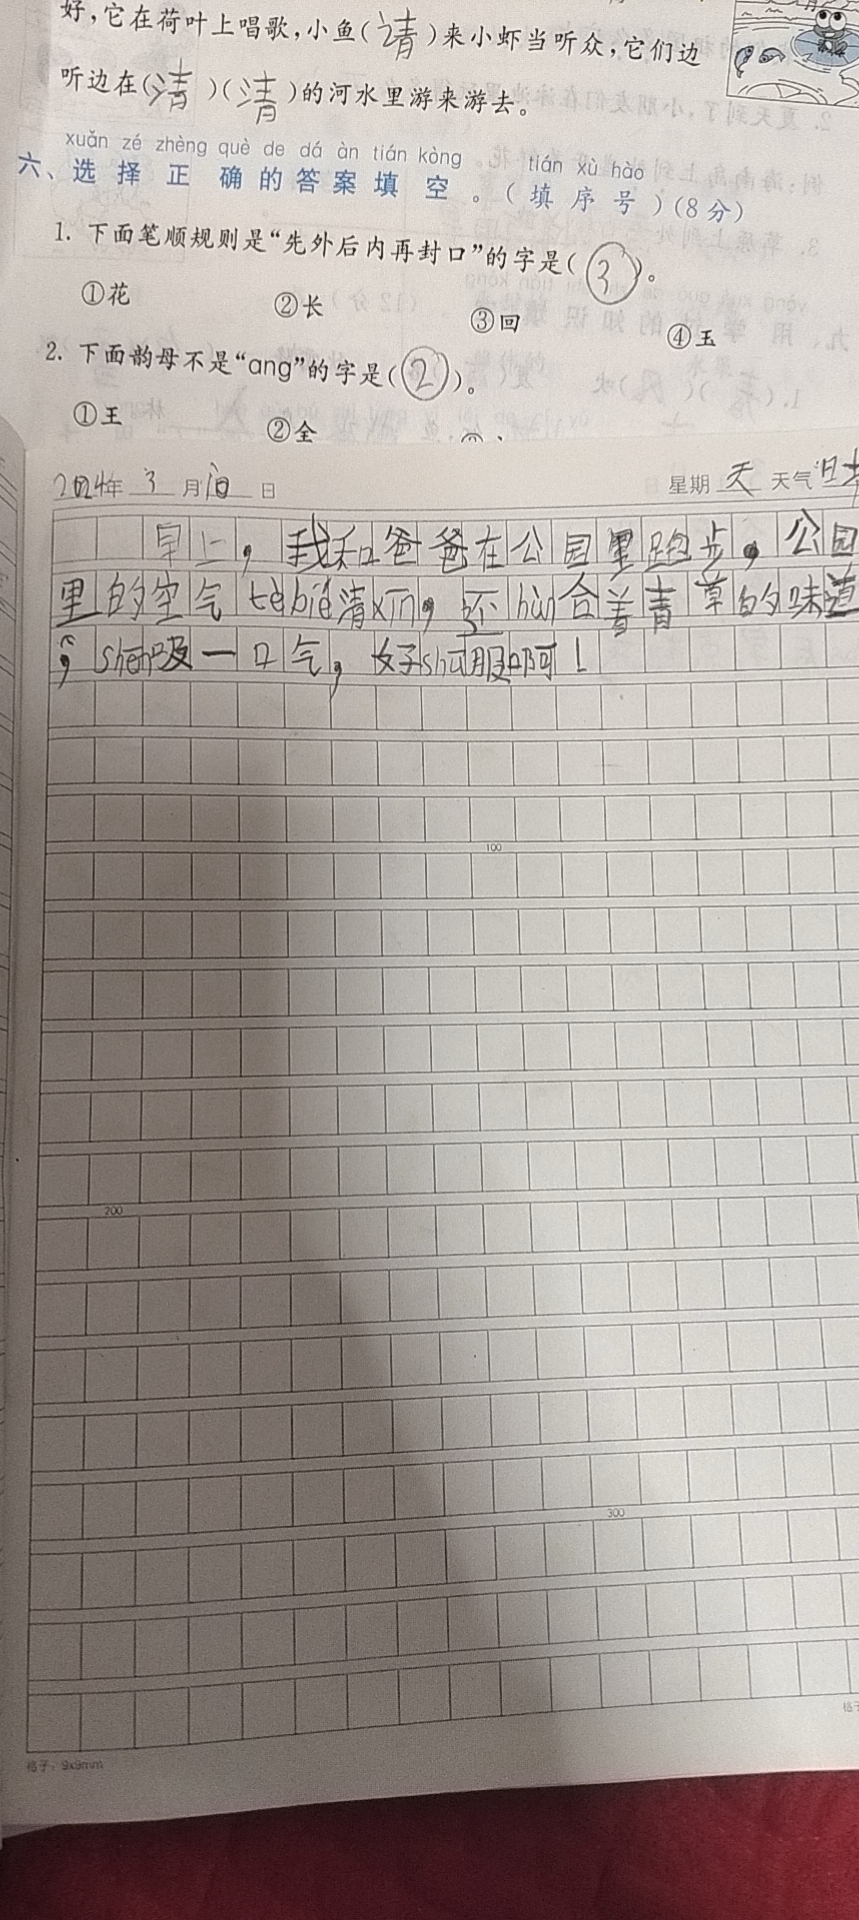 好,它在荷叶上唱歌,小鱼(请)来小虾当听众,它们边
听边在(清)(清)的河水里游来游去。
xuǎn zé zhèng què de dá àn tián kòng tián xù hào
六、选择正确的答案填空。(填序号)(8分)
1. 下面笔顺规则是“先外后内再封口”的字是(3)。
①花 ②长 ③回 ④玉
2. 下面韵母不是“ang”的字是(2)。
①王 ②全
2024年 3 月 日 星期 天 天气
早上,我和爸爸在公园里跑步,公园
里的空气tèbié清xīn,还hùn合着青草的味道
,shēn吸一口气,好shū服啊!
100
200
300
格子:9x9mm